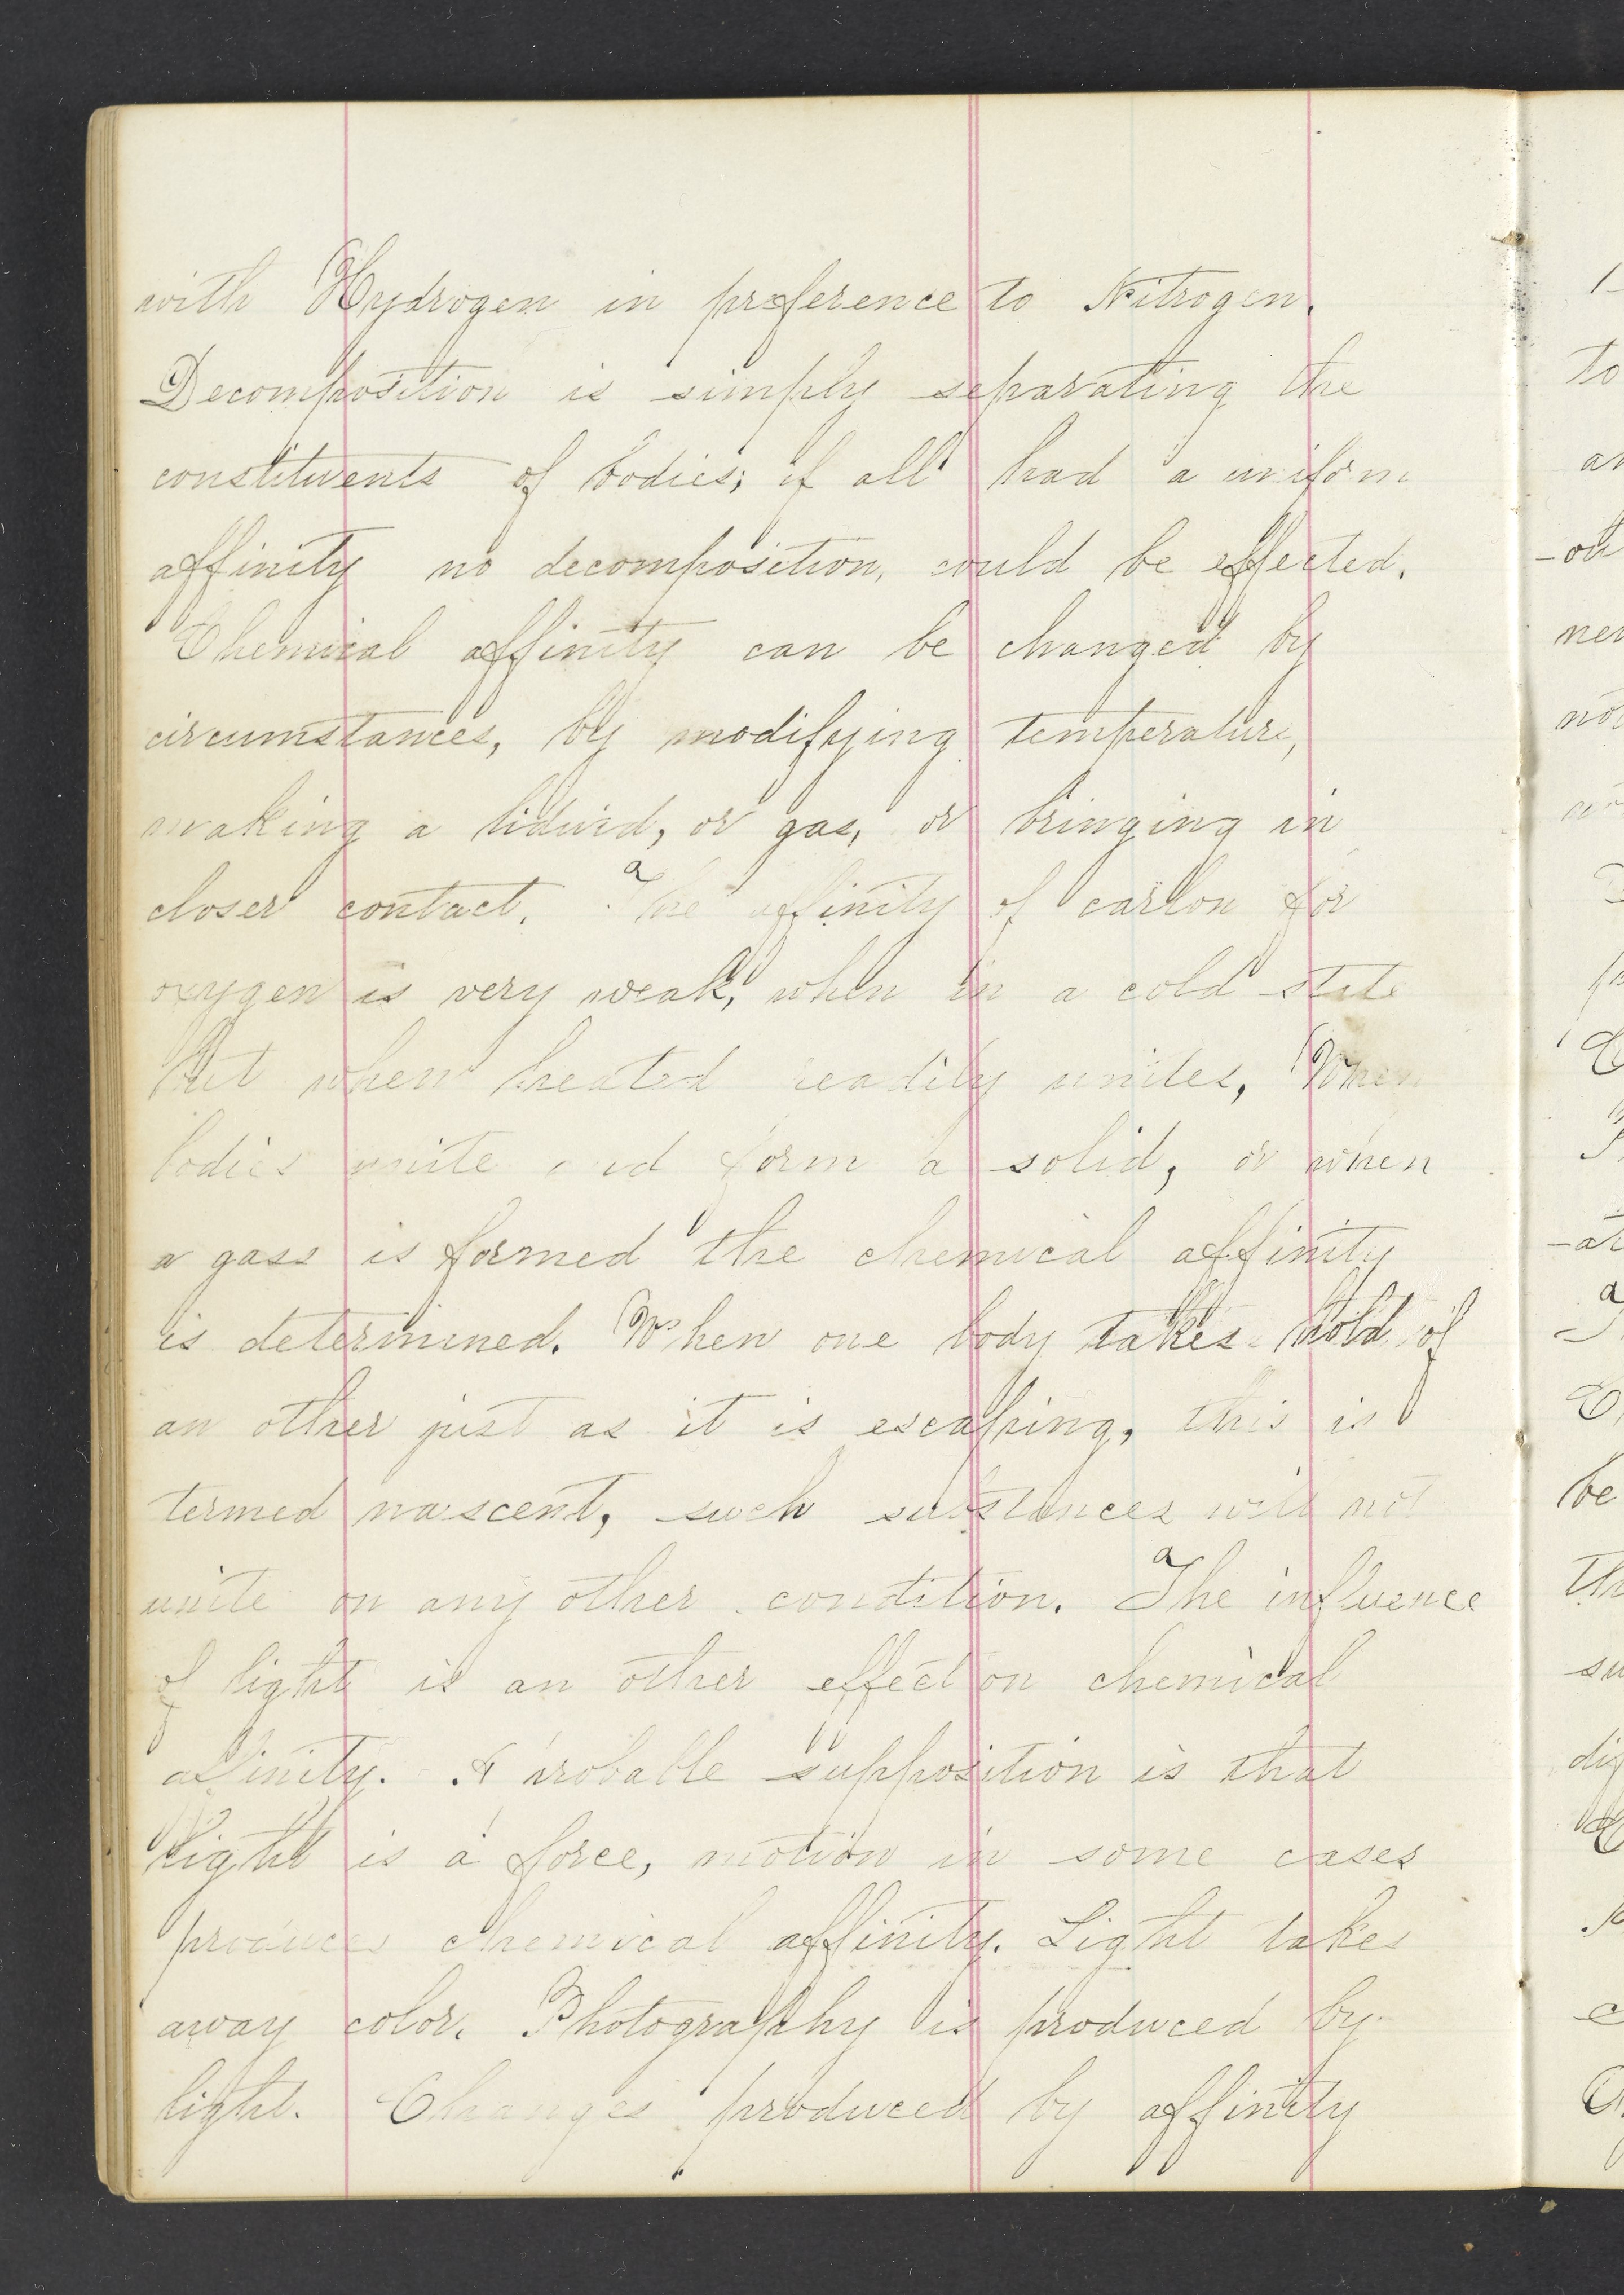 with Hydrogen in preference to Nitrogen.
Decomposition is simply separating the
constituents of bodies; if all had a uniform
affinity no decomposition, could be effected.
Chemical affinity can be changed by
circumstances, by modifying temperature,
making a liduid, or gas, or bringing in
closer contact. The affinity of carbon for
oxygen is very weak, when in a cold state
but when heated readily unites, When
bodies unite and form a solid, or when
a gass is formed the chemical affinity
is determined. When one body takes hold of
an other just as it is escaping, this is
termed nascent, such substances will not
unite on any other condition. The influence
of light is an other effect on chemical
affinity. A probable suppposition is that
light is a force, motion in some cases
produces chemical affinity. Light takes
away color. Photography is produced by
light. Changes produced by affinity
To
be